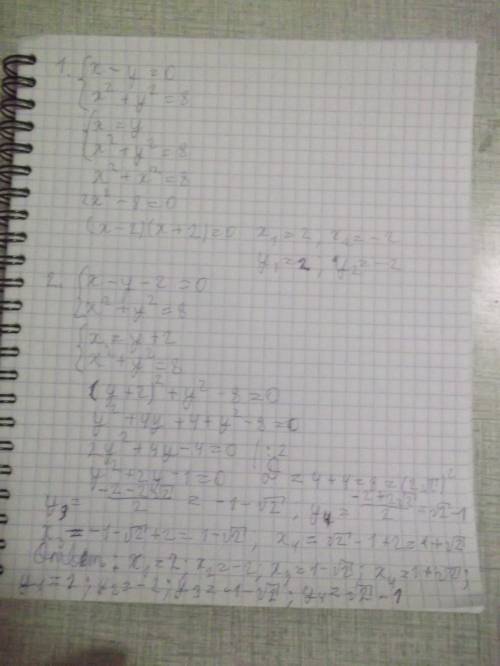 1. { x - y = 0
{ x² + y² = 8
{ x = y
{ x² + y² = 8
x² + x² = 8
2x² - 8 = 0
(x-2)(x+2)=0 x₁=2, x₂=-2
y₁=2, y₂=-2
2. { x - y - 2 = 0
{ x² + y² = 8
{ x = y + 2
{ x² + y² = 8
(y+2)² + y² - 8 = 0
y² + 4y + 4 + y² - 8 = 0
2y² + 4y - 4 = 0 | : 2
y² + 2y - 1 = 0 D = 4 + 4 = 8 = (2√2)²
y₃ = (-2-2√2)/2 = -1-√2, y₄ = (-2+2√2)/2 = √2-1
x₃ = -1-√2+2 = 1-√2, x₄ = √2-1+2 = 1+√2
Ответ: x₁=2; x₂=-2; x₃=1-√2; x₄=1+√2;
y₁=2; y₂=-2; y₃=-1-√2; y₄=√2-1